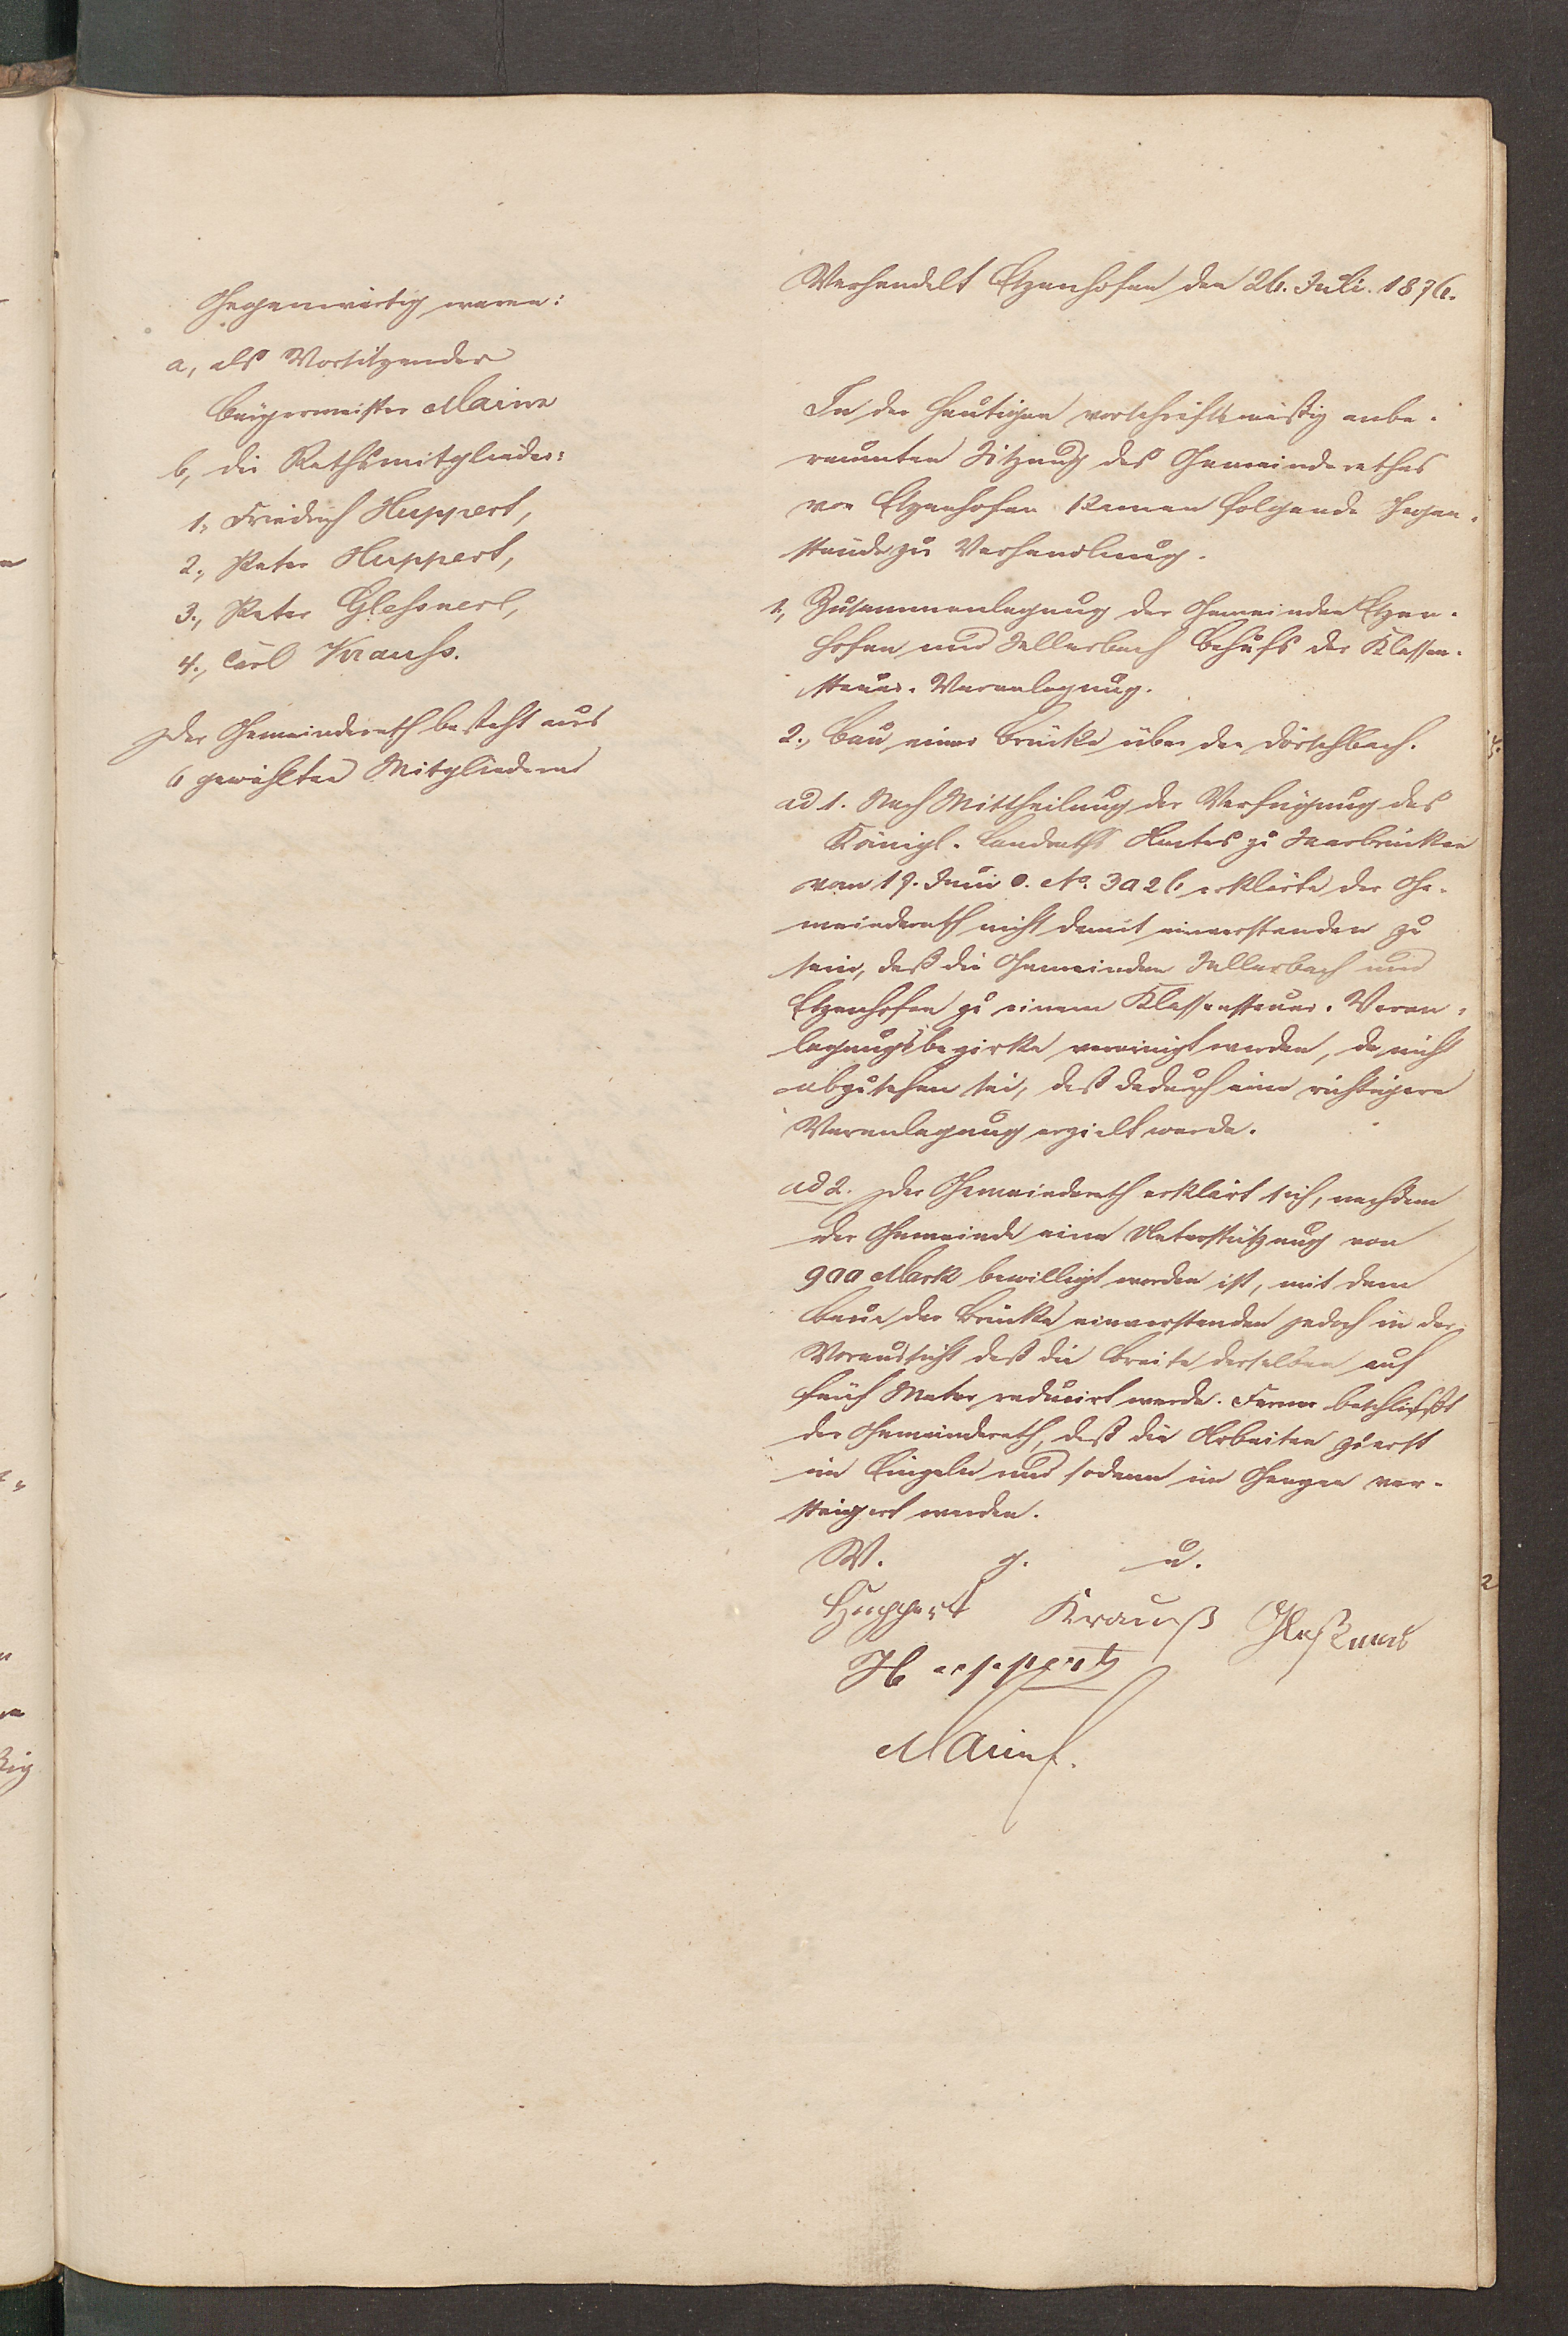 Gegenwärtig waren:
a, als Vorsitzender
Bürgermeister Maire
b, die Rathsmitglieder:
1., Friedrich Huppert,
2., Peter Huppert,
3., Peter Glessner,
4., Carl Krauss.
Der Gemeinderath besteht aus
6 gewählten Mitgliedern
Verhandelt Etzenhofen den 26. Juli. 1876.
In der heutigen vorschriftsmäßig anbe-
raumten Sitzung des Gemeinderathes
von Etzenhofen kamen folgende Gegen-
stände zu Verhandlung.
1., Zusammenlegung der Gemeinden Etzen-
hofen und Sellerbach behufs der Klassen-
steuer-Veranlagung.
2., Bau einer Brücke über den Dörschbach.
ad 1. Nach Mittheilung der Verfügung des
Königl. Landraths Amtes zu Saarbrücken
vom 17. Juni c. No. 3026 erklärte der Ge-
meinderath nicht damit einverstanden zu
sein, daß die Gemeinden Sellerbach und
Etzenhofen zu einem Klassensteuer-Veran-
lagungsbezirke vereinigt werden, da nicht
abzusehen sei, daß dadurch eine richtigere
Veranlagung erzielt werde.
ad 2. Der Gemeinderath erklärt sich, nachdem
der Gemeinde eine Unterstützung von
900 Mark bewilligt worden ist, mit dem
Baue der Brücke einverstanden jedoch in der
Voraussicht daß die Breite derselben auf
fünf Meter reducirt werde. Ferner beschließt
der Gemeinderath, daß die Arbeiten zuerst
im Einzeln und sodann im Ganzen ver-
steigert werden.
V. g. u.
Huppert Krauß Gleßner
Huppert